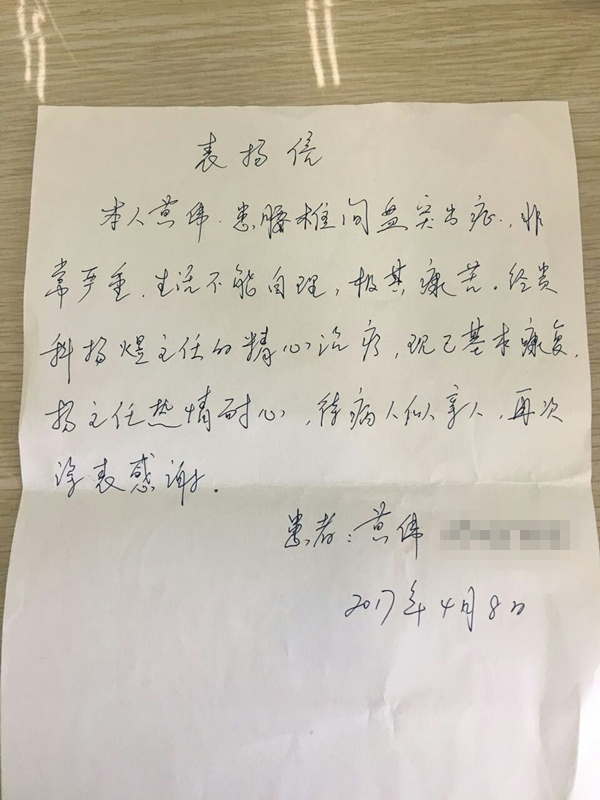 表扬信
本人黄伟.患腰椎间盘突出症,非
常严重.生活不能自理,极其痛苦.经贵
科杨煜主任的精心治疗,现已基本康复.
杨主任热情耐心,待病人似亲人,再次
深表感谢.
患者:黄伟
2017年4月8日